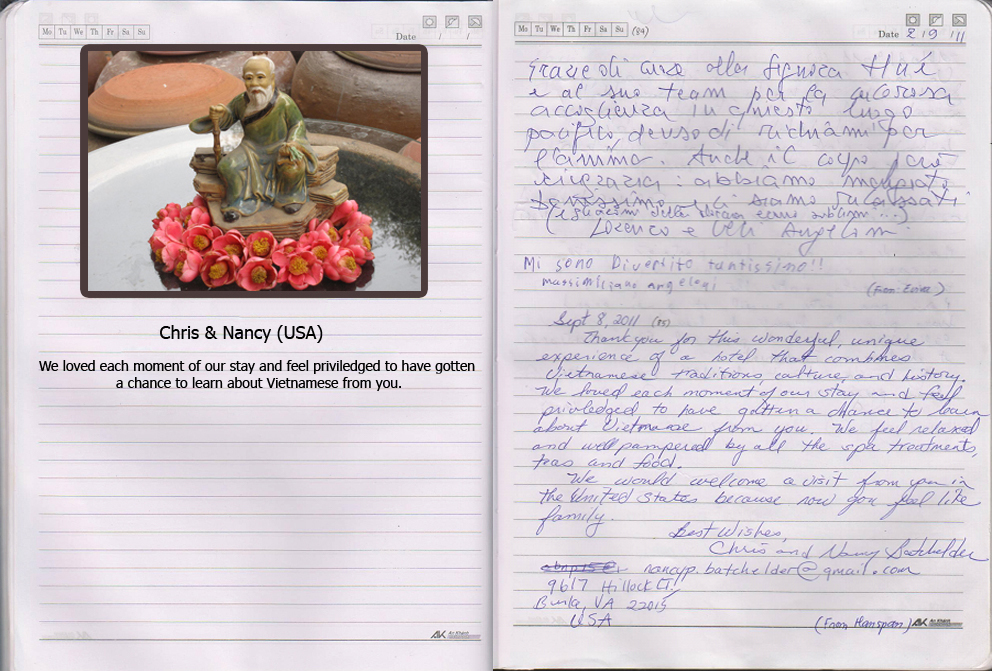 Mo Tu We Th Fr Sa Su
Date / /
Chris & Nancy (USA)
We loved each moment of our stay and feel priviledged to have gotten
a chance to learn about Vietnamese from you.
AK An Khánh
Mo Tu We Th Fr Sa Su (84)
Date 8/9/11
Grazie di cuore alla Signora Hué
e al suo team per la
accoglienza in questo luogo
pacifico, denso di richiami per
l'anima. Anche il corpo
ringrazia: abbiamo mangiato
benissimo e ci siamo rilassati
Lorenzo e
Mi sono Divertito tantissimo!!
Massimiliano
(From: )
Sept 8, 2011 (85)
Thank you for this wonderful, unique
experience of a hotel that combines
Vietnamese traditions, culture, and history.
We loved each moment of our stay and feel
priviledged to have gotten a chance to learn
about Vietnamese from you. We feel relaxed
and well pampered by all the spa treatments,
teas and food.
We would welcome a visit from you in
the United States because now you feel like
family.
Best Wishes,
Chris and Nancy Batchelder
nancyp.batchelder@gmail.com
9617 Hillock Ct.
Burke, VA 22015
USA
(From Hanspan) AK An Khánh